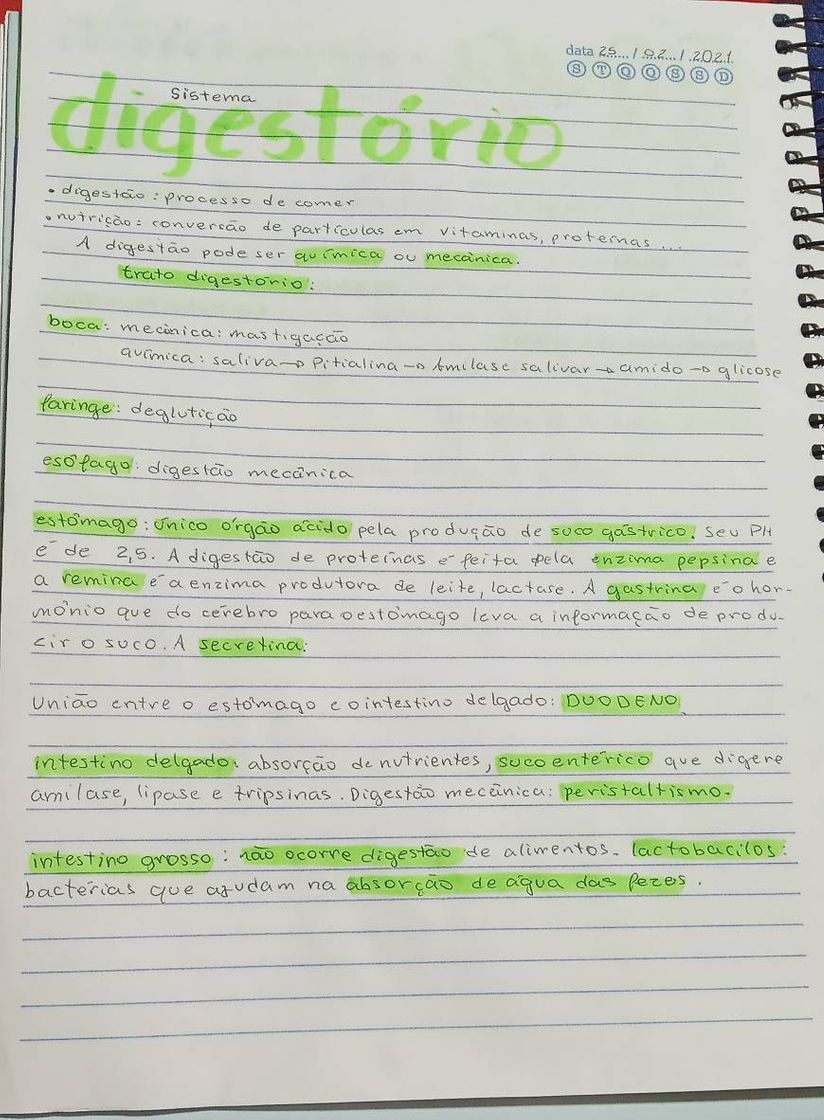 data 25... / 02... / .2021.
S T Q Q S S D
Sistema
digestório
• digestão: processo de comer
• nutrição: conversão de partículas em vitaminas, proteínas ...
A digestão pode ser química ou mecânica.
trato digestório:
boca: mecânica: mastigação
química: saliva → Pitialina → Amilase salivar → amido → glicose
faringe: deglutição
esôfago: digestão mecânica
estômago: único órgão ácido pela produção de suco gástrico. Seu PH
é de 2,5. A digestão de proteínas é feita pela enzima pepsina e
a remina é a enzima produtora de leite, lactase. A gastrina é o hor-
mônio que do cérebro para o estômago leva a informação de produ-
cir o suco. A secretina:
União entre o estômago e o intestino delgado: DUODENO
intestino delgado: absorção de nutrientes, suco entérico que digere
amilase, lipase e tripsinas. Digestão mecânica: peristaltismo.
intestino grosso: não ocorre digestão de alimentos. lactobacilos:
bactérias que ajudam na absorção de água das fezes.